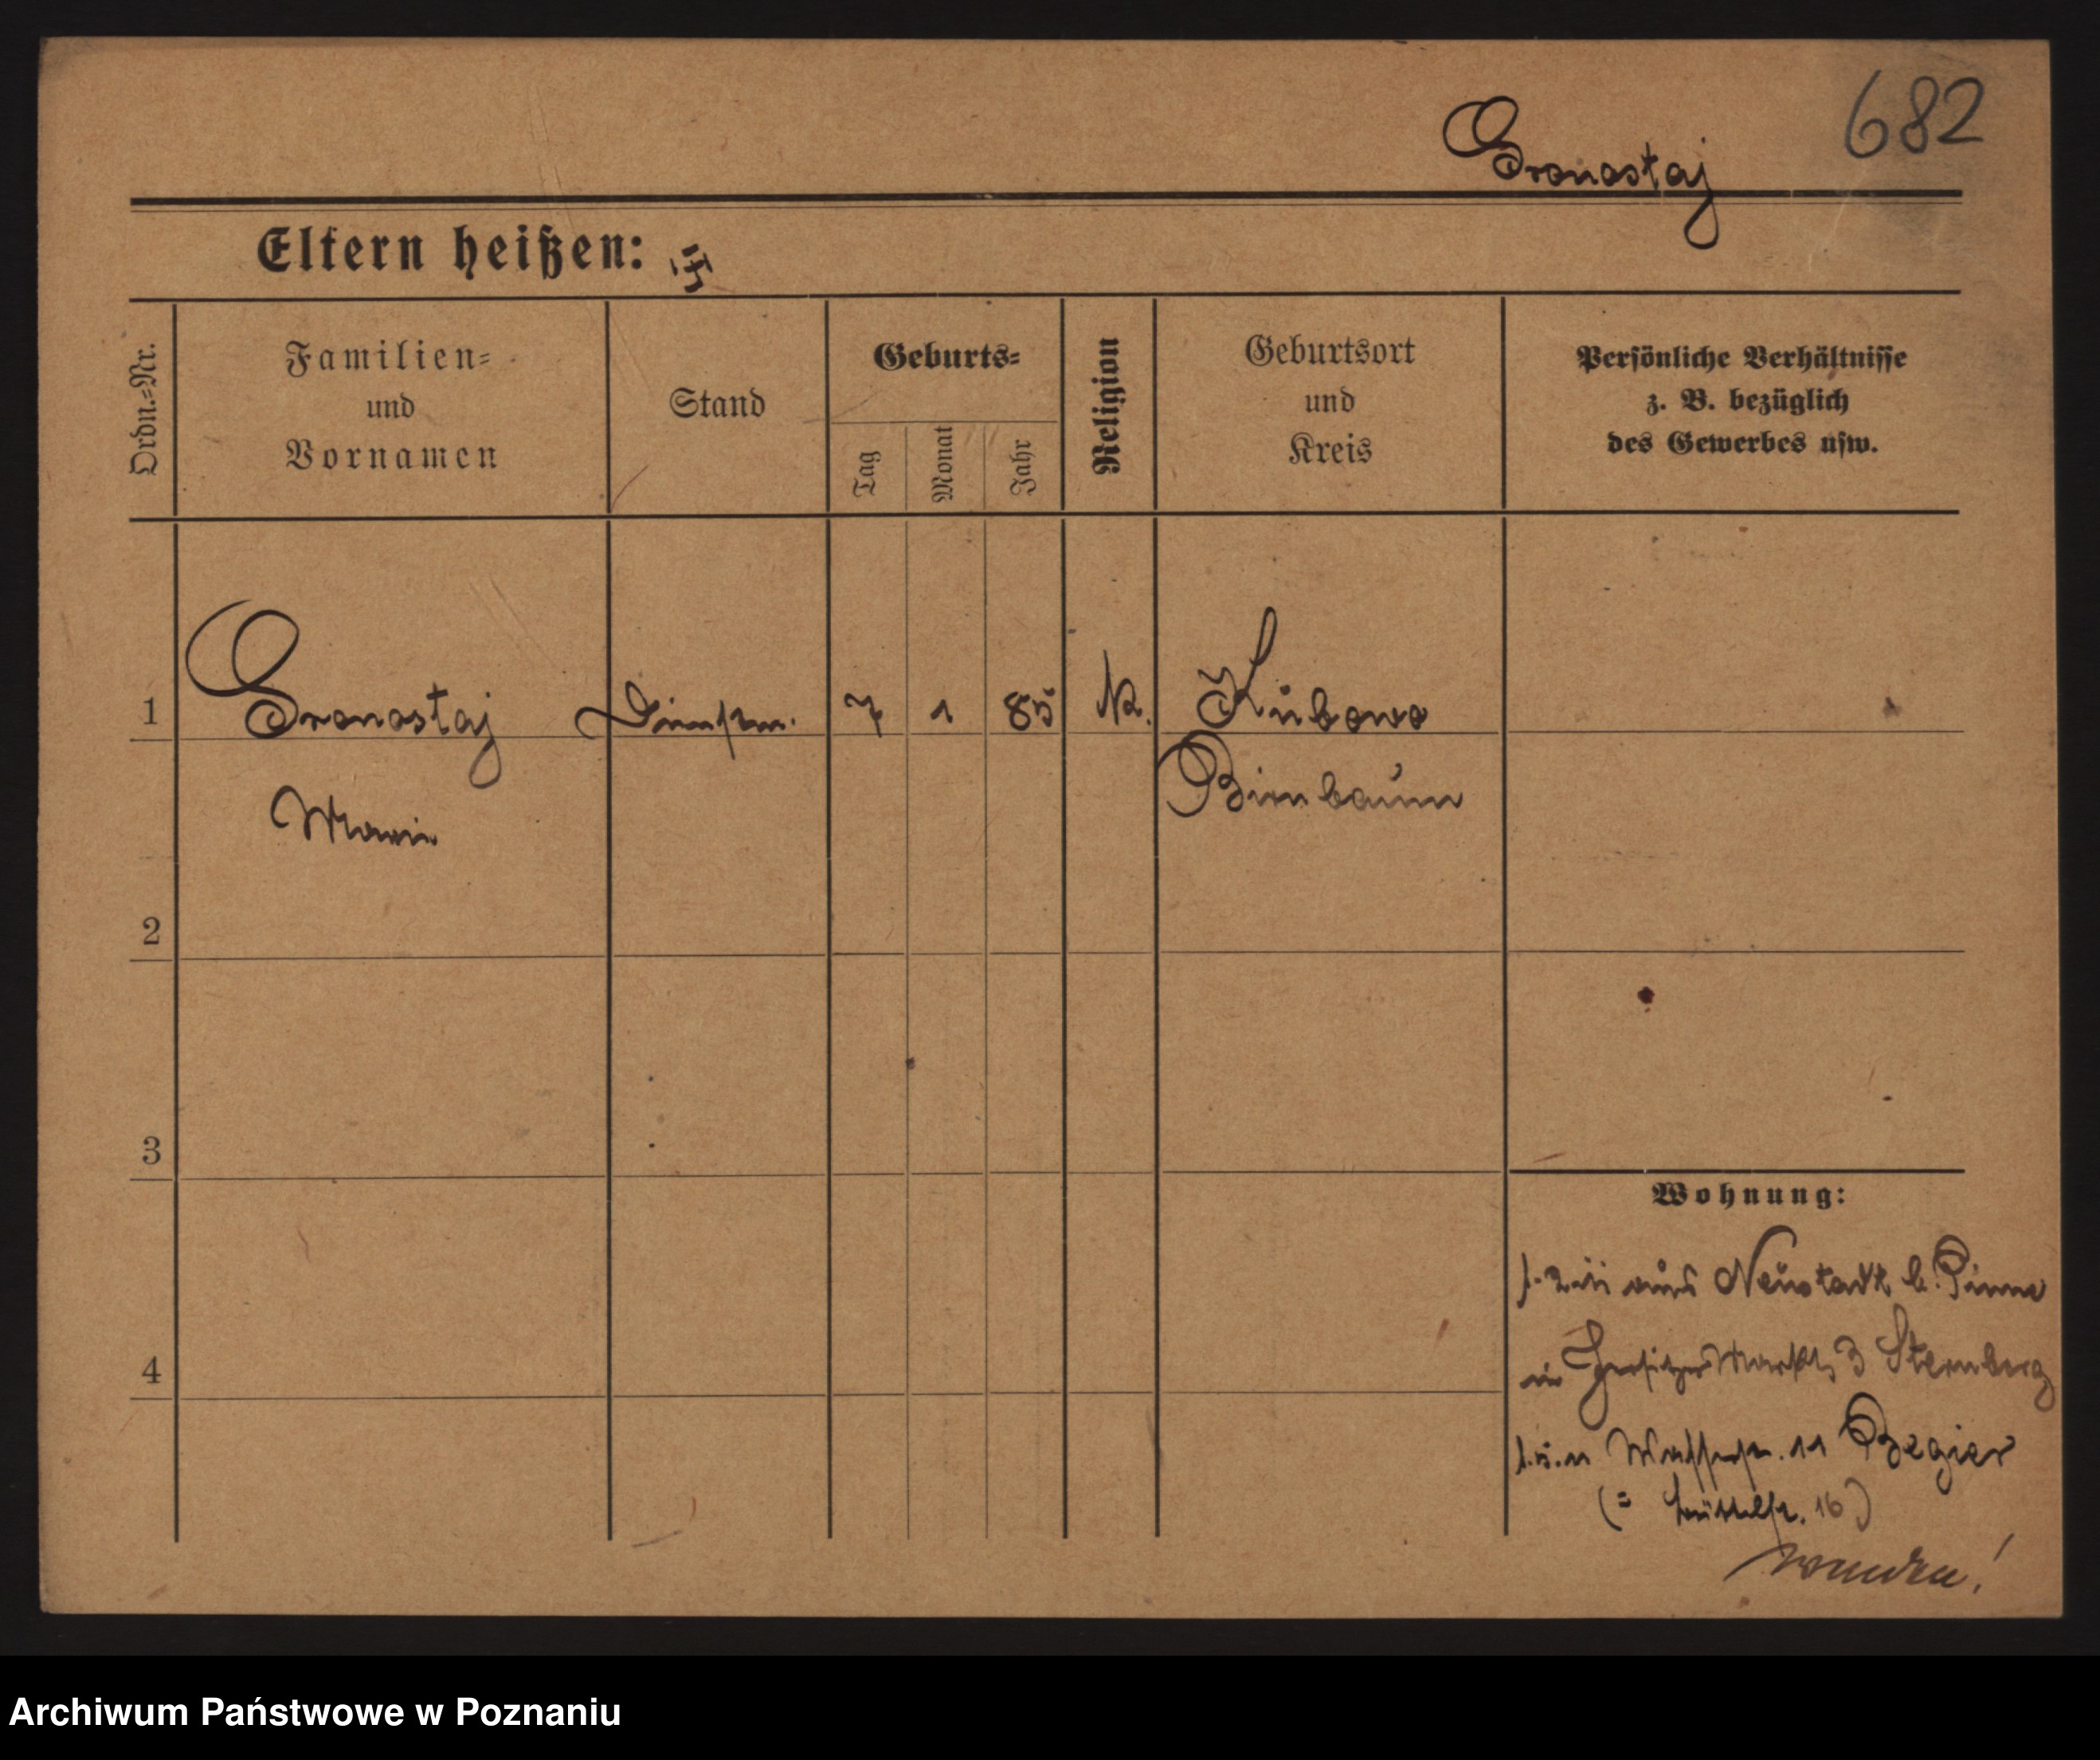 682
Gronostaj
Eltern heißen:
Ordn.-Nr.
Familien-
und
Vornamen
Stand
Geburts-
Tag
Monat
Jahr
Religion
Geburtsort
und
Kreis
Persönliche Verhältnisse
z. B. bezüglich
des Gewerbes usw.
1
Gronostaj
Dienstm.
7
1
85
k.
Kubowo
Marie
Birnbaum
2
3
4
Wohnung:
aus Neustadt b. Pinne
Jersitzer Markt 3 Sternberg
11 Begier
16)
wenden!
Archiwum Państwowe w Poznaniu